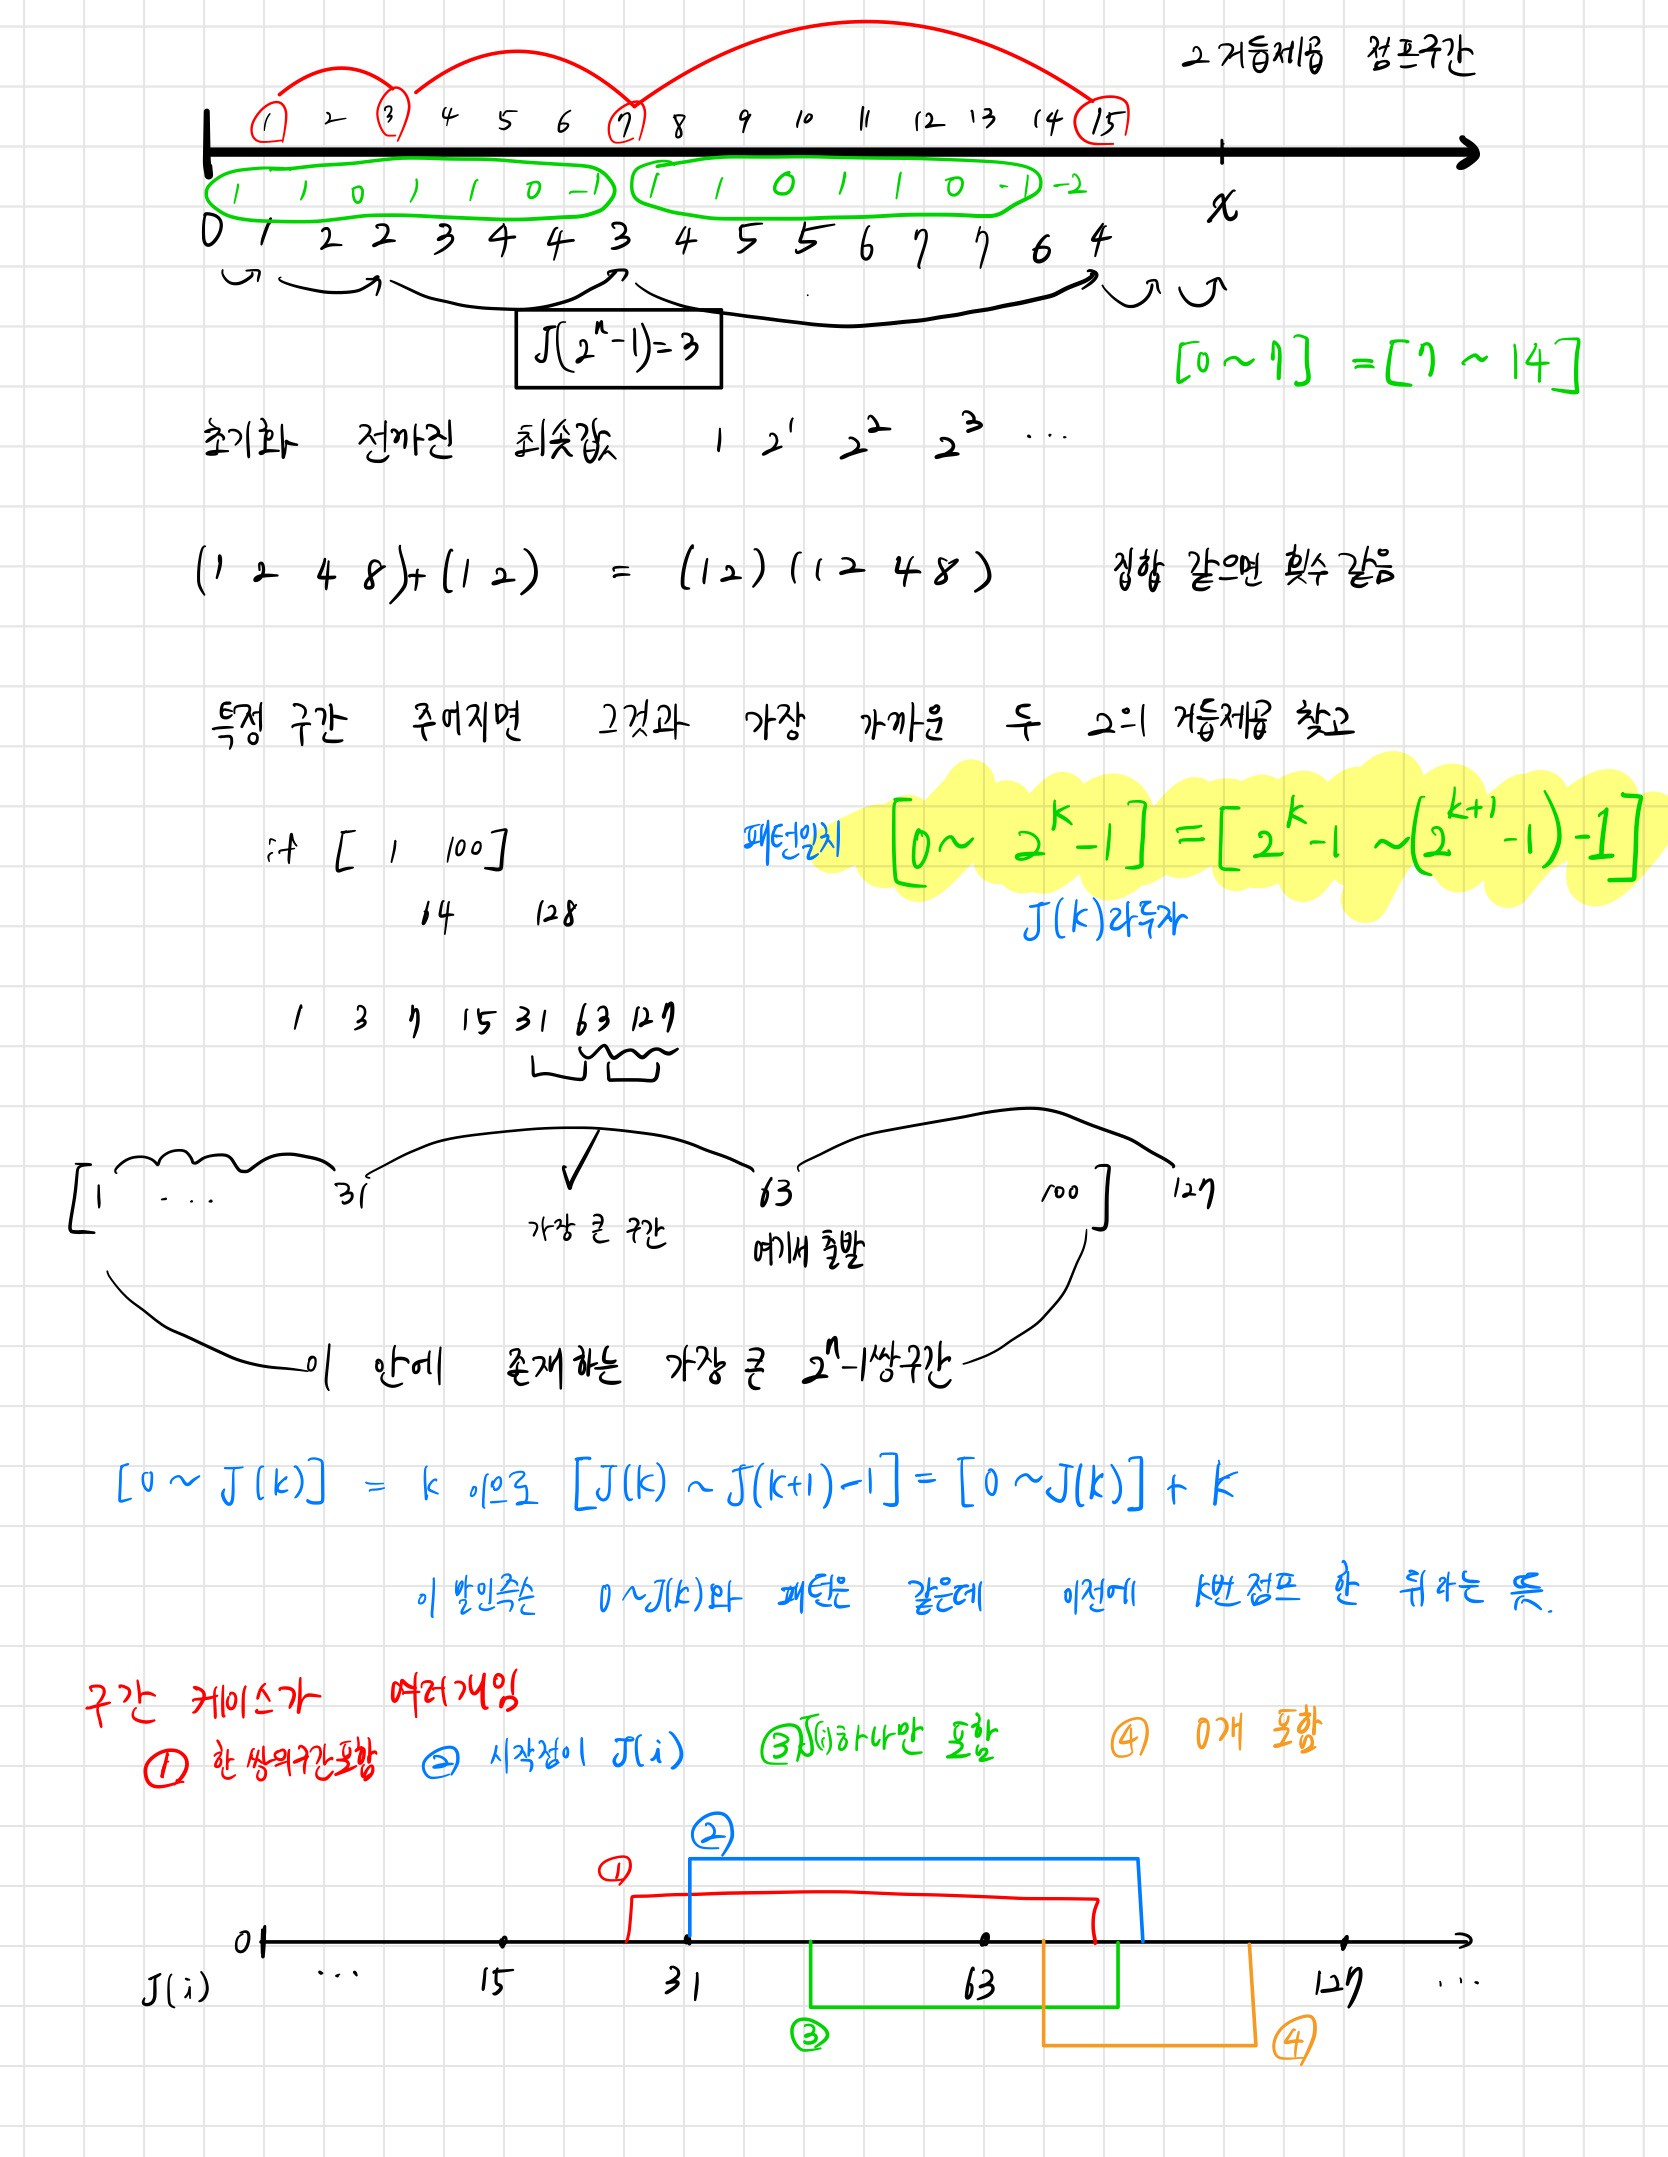 2 거듭제곱 점프구간
1 2 3 4 5 6 7 8 9 10 11 12 13 14 15
1 1 0 1 1 0 -1 1 1 0 1 1 0 -1 -2
x
0 1 2 2 3 4 4 3 4 5 5 6 7 7 6 4
J(2^n-1)=3
[0 ~ 7] = [7 ~ 14]
초기화 전까진 최솟값 1 2^1 2^2 2^3 ...
(1 2 4 8)+(1 2) = (1 2) (1 2 4 8) 집합 같으면 횟수 같음
특정 구간 주어지면 그것과 가장 가까운 두 2의 거듭제곱 찾고
if [ 1 100]
패턴일치 [0 ~ 2^k-1] = [2^k-1 ~(2^k+1-1)-1]
64 128
J(k)라두자
1 3 7 15 31 63 127
[1 ... 31 63 100] 127
가장 큰 구간
여기서 출발
이 안에 존재하는 가장 큰 2^n-1쌍구간
[0 ~ J(k)] = k 이므로 [J(k) ~ J(k+1)-1] = [0 ~J(k)] + k
이 말인즉슨 0~J(k)와 패턴은 같은데 이전에 k번 점프 한 뒤라는 뜻.
구간 케이스가 여러개임
① 한 쌍의구간포함 ② 시작점이 J(i) ③ J(i)하나만 포함 ④ 0개 포함
②
①
0
J(i) ... 15 31 63 127 ...
③
④